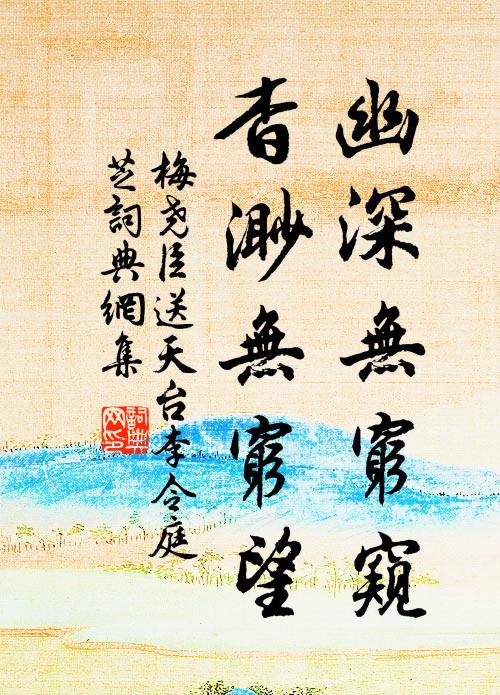 幽深無窮窺
杳渺無窮望
梅堯臣送天台李令庭
芝詞典網集
詞典网印